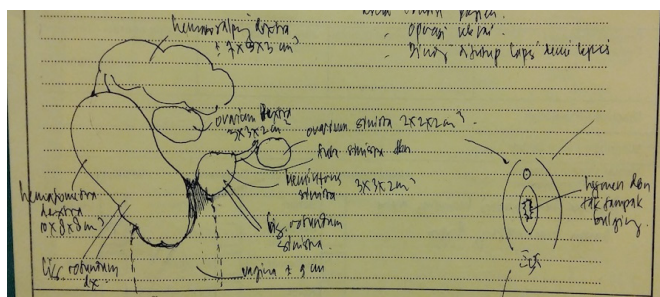 operasi selesai.
Dinding ditutup lapis demi lapis
hematosalping dextra
ovarium dextra
3x3x2 cm³
ovarium sinistra 2x2x2 cm³
tuba sinistra dbn
sinistra 3x3x2 cm³
hematometra
dextra
10x8x8 cm³
lig. rotundum
dx.
lig. rotundum
sinistra.
vagina ± 9 cm
hymen dbn
tak tampak
bulging.